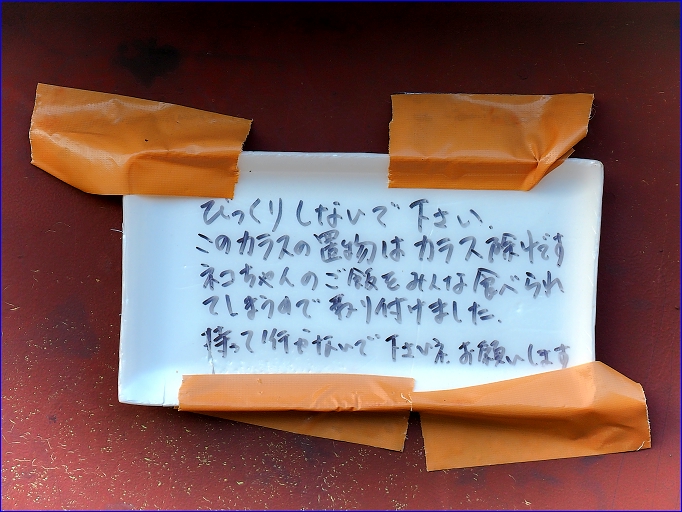 びっくりしないで下さい.
このカラスの置物はカラス除けです
ネコちゃんのご飯をみんな食べられ
てしまうので取り付けました.
持って行かないで下さいネ お願いします